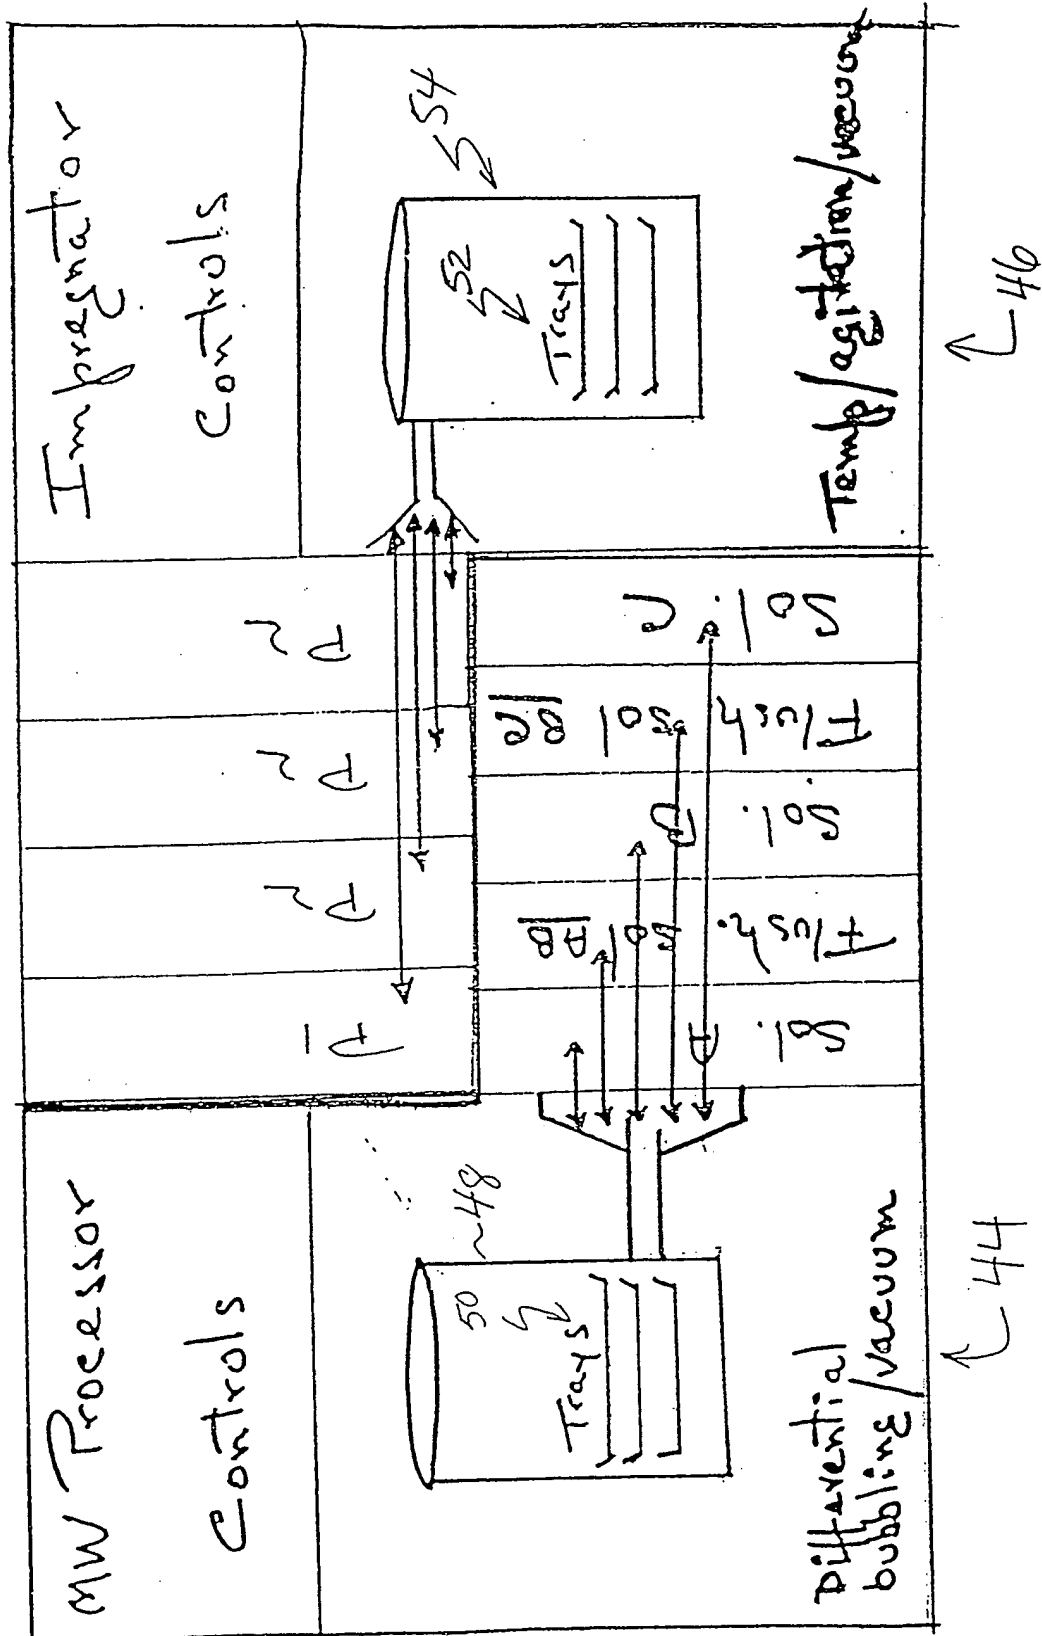 MW Processor
Controls
50
48
Trays
Differential
bubbling/vacuum
44
P
P
P
P
Sol. A
Flush. sol AB
Sol. B
Flush sol BC
Sol. C
Impregnator
Controls
54
52
Trays
Temp/agitation/vacuum
46